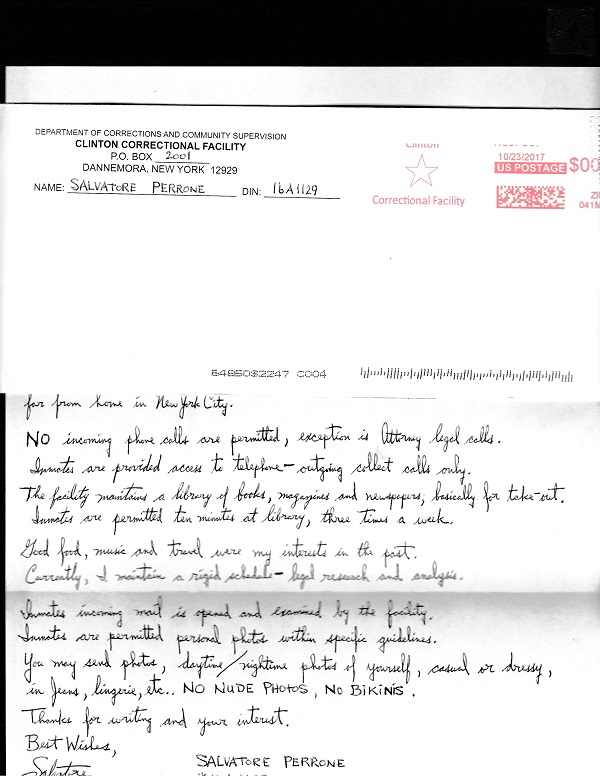 DEPARTMENT OF CORRECTIONS AND COMMUNITY SUPERVISION
CLINTON CORRECTIONAL FACILITY
P.O. BOX 2001
DANNEMORA, NEW YORK 12929
NAME: SALVATORE PERRONE DIN: 16A1129
Clinton
Correctional Facility
10/23/2017
US POSTAGE $00
ZI
041M
far from home in New York City.
NO incoming phone calls are permitted, exception is Attorney legal calls.
Inmates are provided access to telephone - outgoing collect calls only.
The facility maintains a library of books, magazines and newspapers, basically for take-out.
Inmates are permitted ten minutes at library, three times a week.
Good food, music and travel were my interests in the past.
Currently, I maintain a rigid schedule - legal research and analysis.
Inmates incoming mail is opened and examined by the facility.
Inmates are permitted personal photos within specific guidelines.
You may send photos, daytime/nightime photos of yourself, casual or dressy,
in jeans, lingerie, etc.. NO NUDE PHOTOS, NO BIKINIS.
Thanks for writing and your interest.
Best Wishes,
Salvatore SALVATORE PERRONE